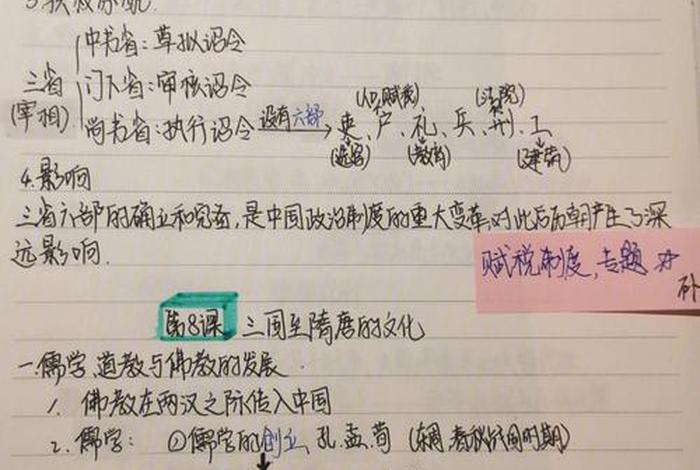 中书省：草拟诏令
三省 门下省：审核诏令
(宰相) 尚书省：执行诏令 设有六部 → 吏、户、礼、兵、刑、工
(人口,赋税) (法院)
(选官) (教育) (建筑)
4.影响
三省六部的确立和完善,是中国政治制度的重大变革,对此后历朝产生了深
远影响.
赋税制度,专题
补
第8课 三国至隋唐的文化
一.儒学,道教与佛教的发展.
1. 佛教在两汉之际传入中国
2. 儒学: ①儒学的创立 孔.孟.荀 (东周.春秋战国时期)